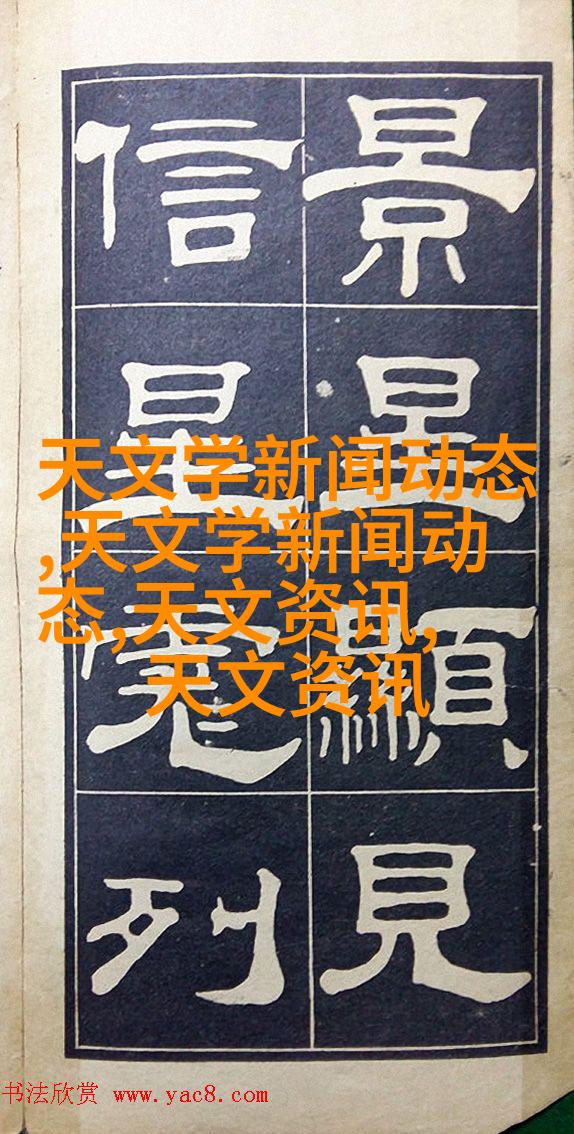 景星顯見
信星列
天文学新闻动态
,天文学新闻动
态,天文资讯,
天文资讯
书法欣赏 www.yac8.com